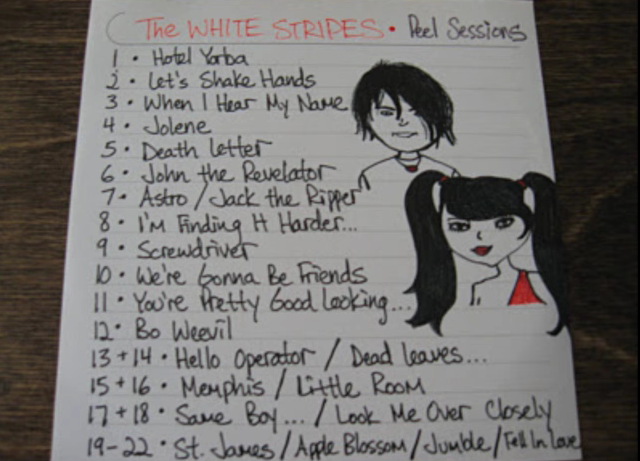 The WHITE STRIPES • Peel Sessions
1 • Hotel Yorba
2 • Let's Shake Hands
3 • When I Hear My Name
4 • Jolene
5 • Death Letter
6 • John the Revelator
7 • Astro / Jack the Ripper
8 • I'm Finding It Harder...
9 • Screwdriver
10 • We're Gonna Be Friends
11 • You're Pretty Good Looking...
12 • Bo Weevil
13 + 14 • Hello Operator / Dead Leaves...
15 + 16 • Memphis / Little Room
17 + 18 • Same Boy... / Look Me Over Closely
19-22 • St. James / Apple Blossom / Jumble / Fell In Love